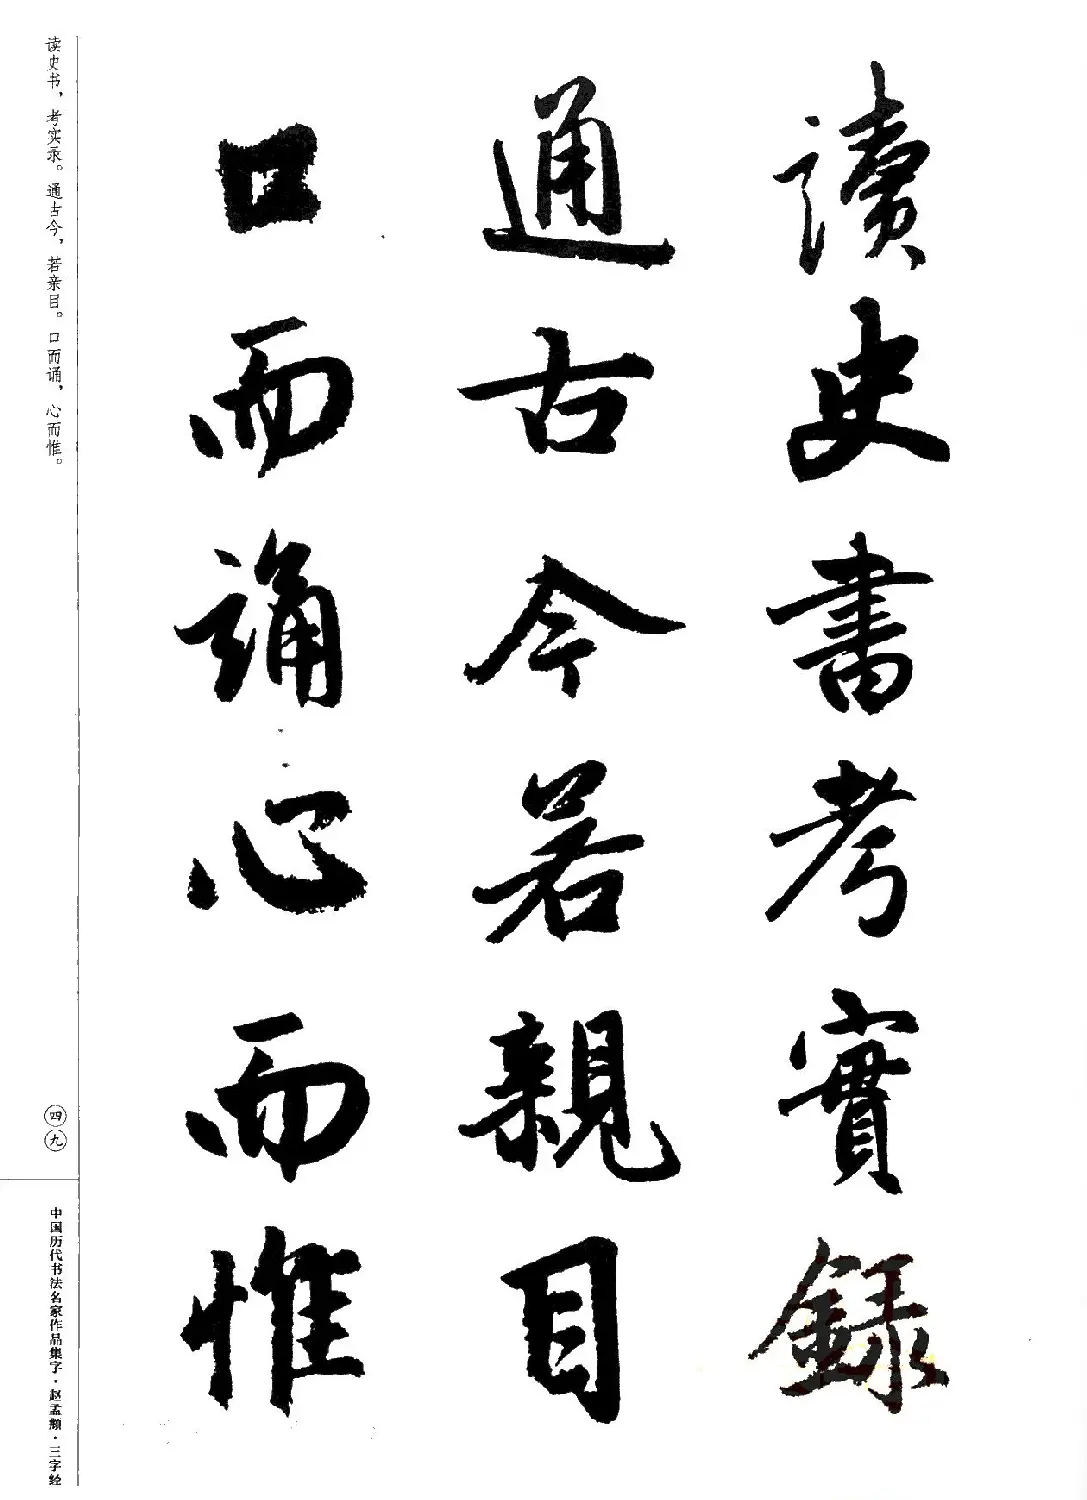 讀史書考實録
通古今若親目
口而誦心而惟
读史书，考实录。通古今，若亲目。口而诵，心而惟。
四九
中国历代书法名家作品集字·赵孟頫·三字经